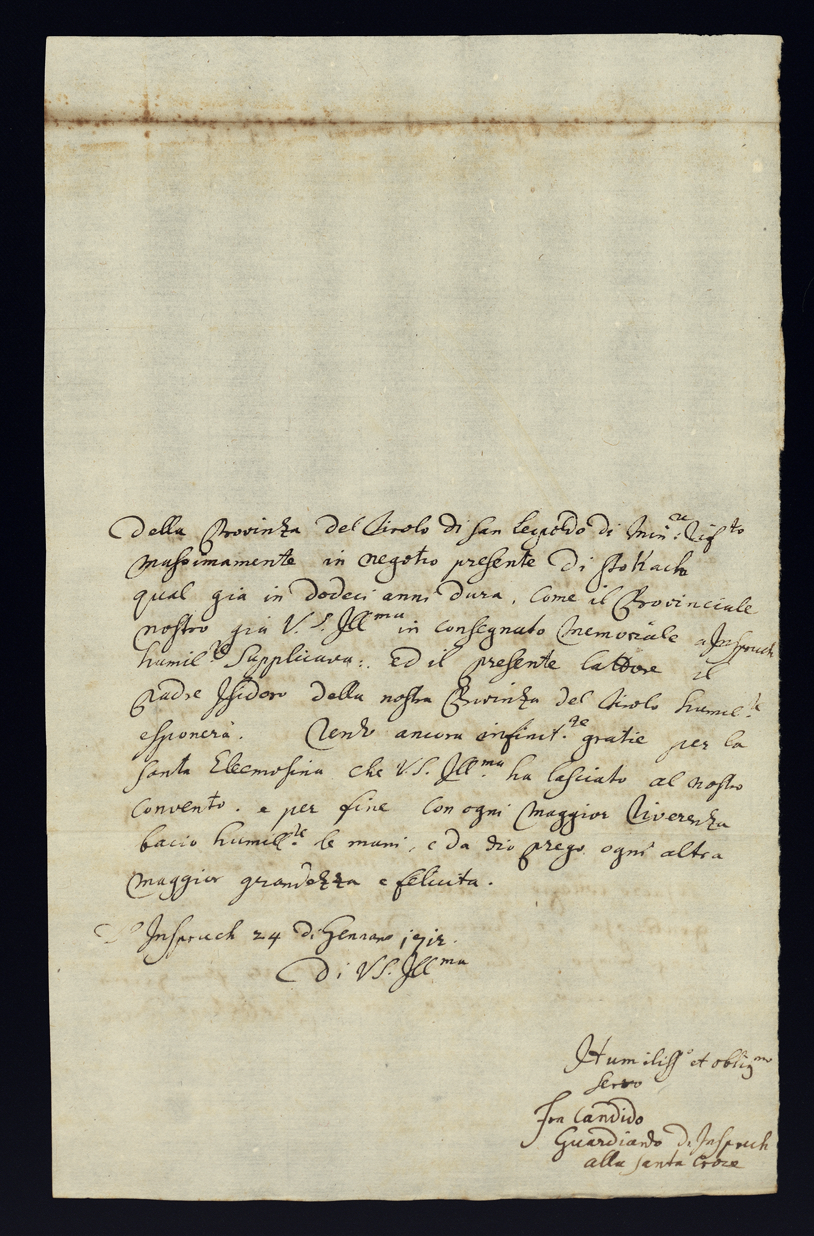 Della Provinza del Tirolo di San Leopoldo di Min.re Rif.to
massimamente in negotio presente di Stokach
qual gia in dodeci anni dura, Come il Provinciale
nostro già V.S. Ill.ma in consegnato memoriale a Inspruch
humil.te Supplicava: ed il presente lattore il
Padre Isidoro della nostra Provinza del Tirolo humil.te
esponerà. Rendo ancora infinit.me gratie per la
santa Elemosina che V.S. Ill.ma ha lasciato al nostro
Convento. e per fine con ogni maggior Riverenza
bacio humil.te le mani, e da dio prego ogni altra
maggior grandezza e felicita.
Inspruch 24 di Gennaro 1712.
Di V.S. Ill.ma
Humiliss.o et oblig.mo
servo
Fra Candido
Guardiano di Inspruch
alla Santa Croce